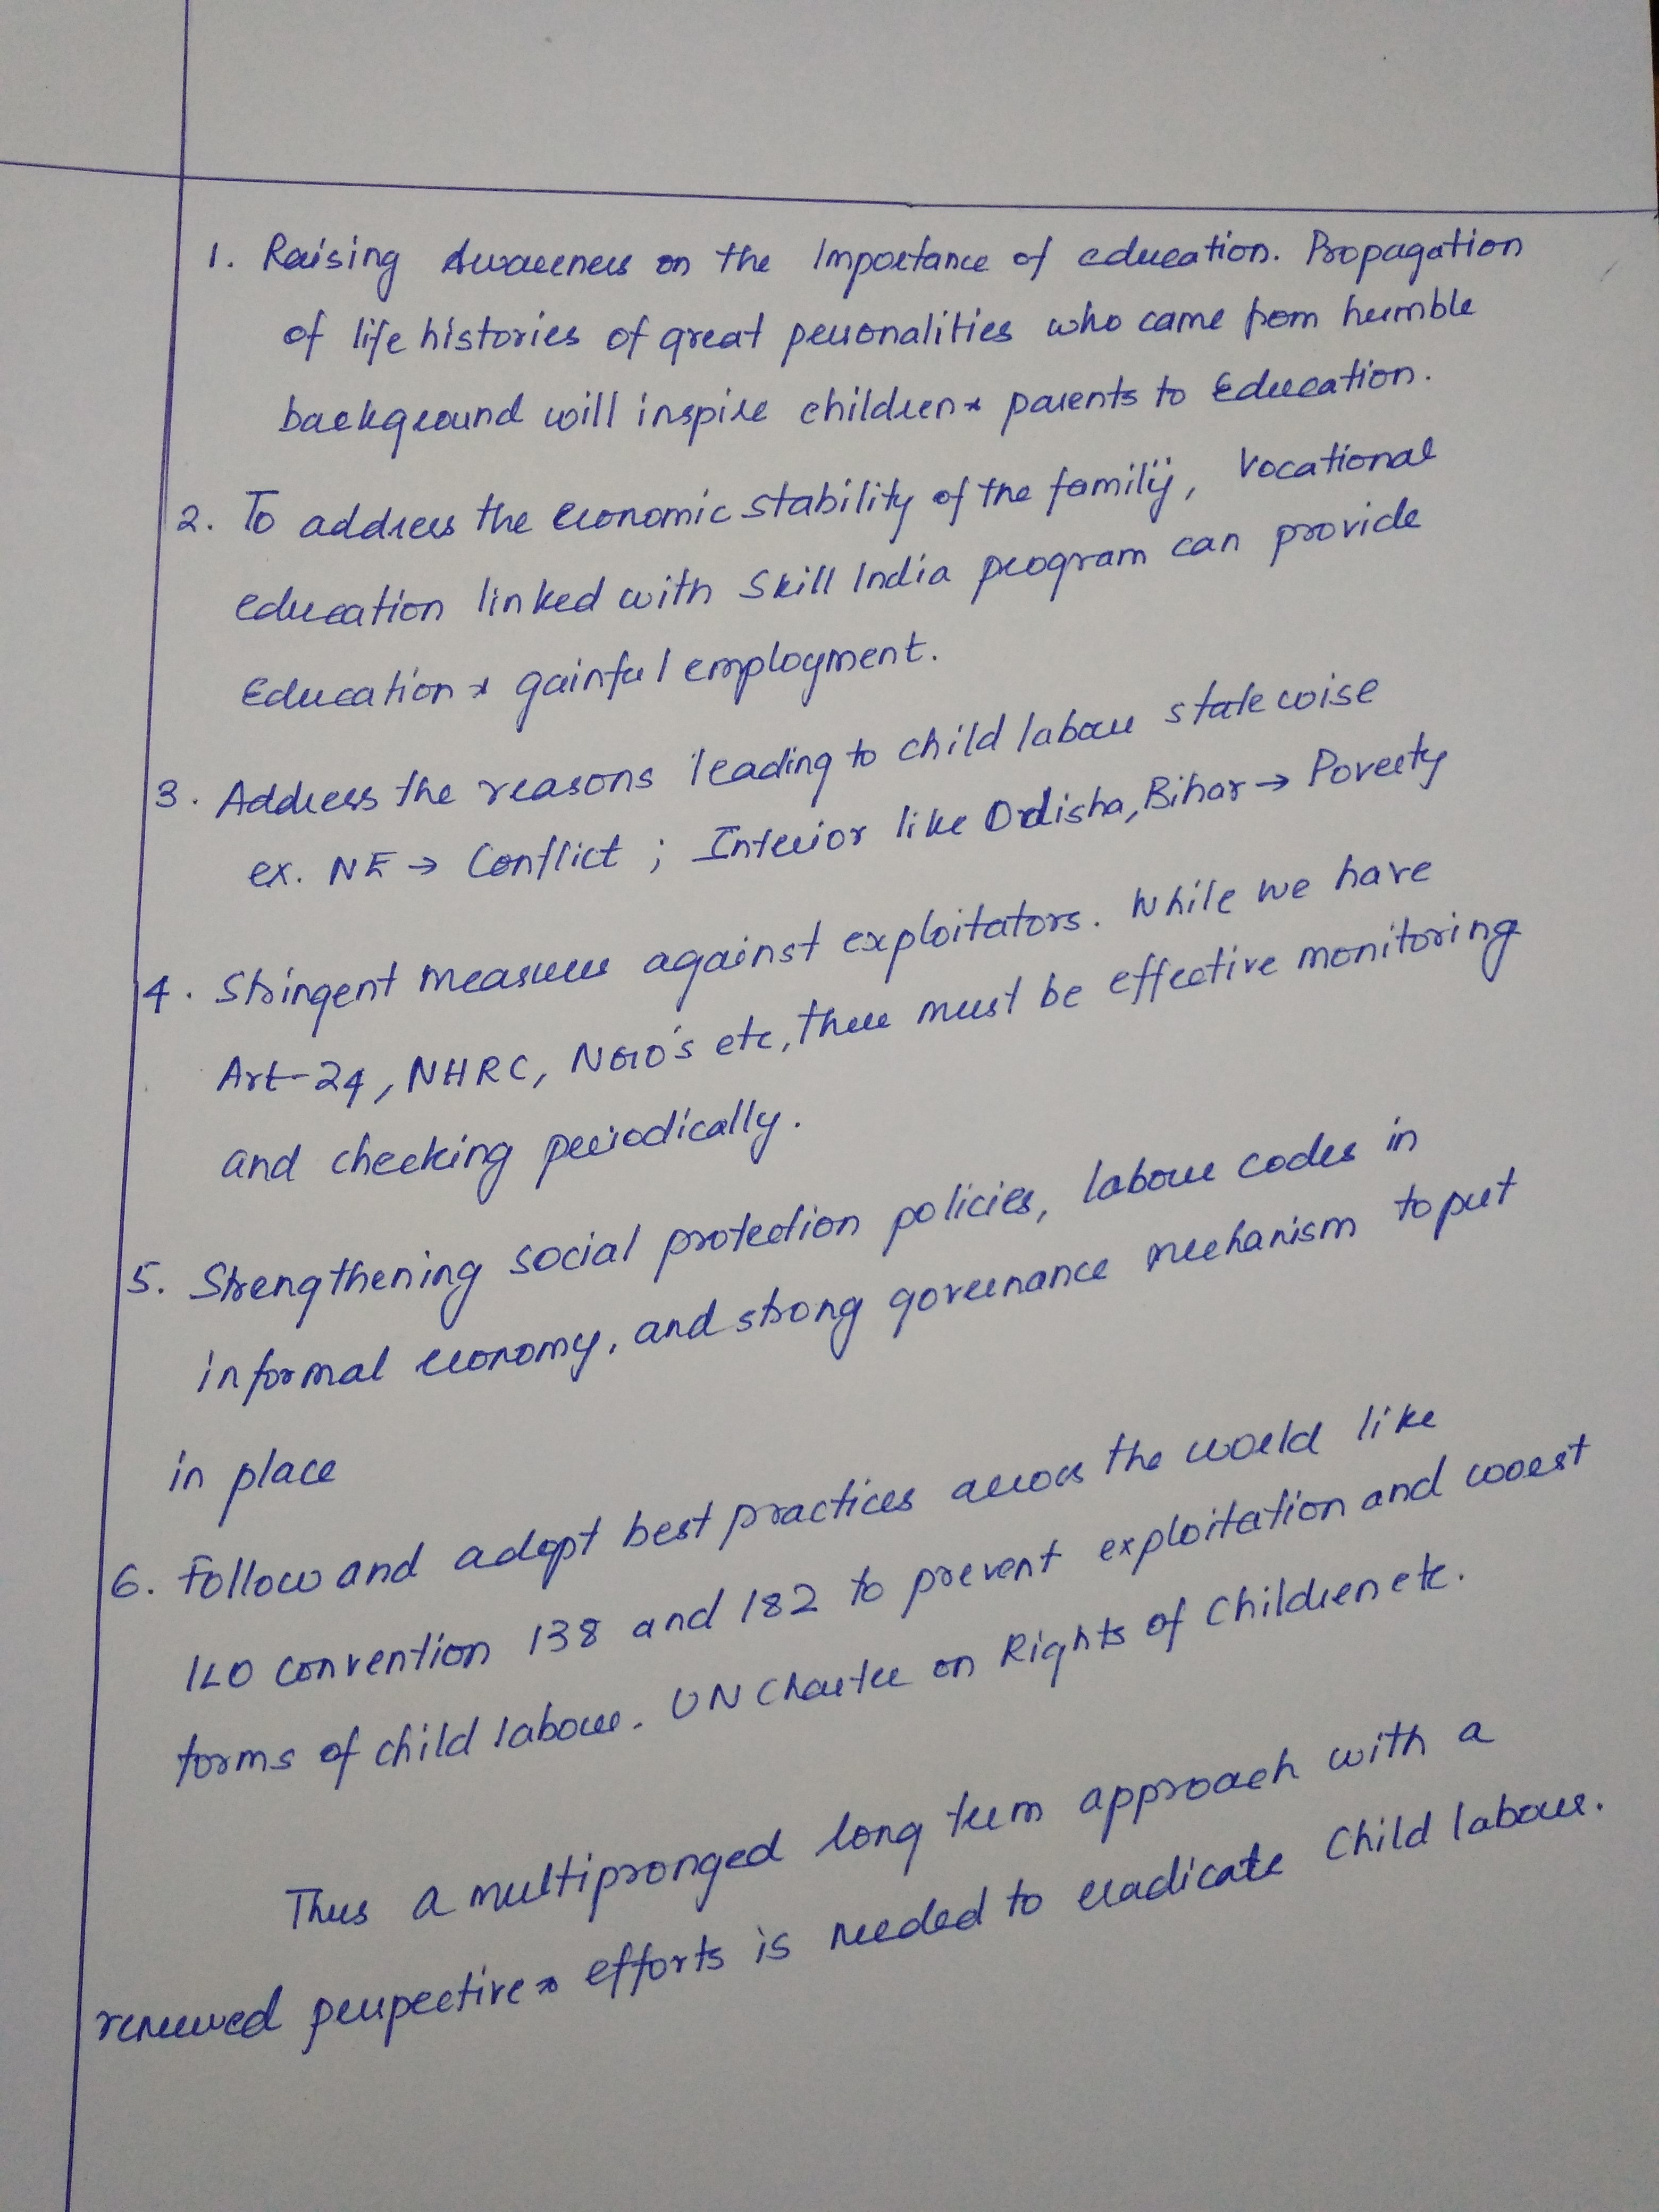 1. Raising Awareness on the Importance of education. Propagation
of life histories of great personalities who came from humble
background will inspire children & parents to Education.
2. To address the economic stability of the family, Vocational
education linked with Skill India program can provide
Education & gainful employment.
3. Address the reasons leading to child labour state wise
ex. NE → Conflict ; Interior like Odisha, Bihar → Poverty
4. Stringent measures against exploitators. While we have
Art-24, NHRC, NGO's etc, there must be effective monitoring
and checking periodically.
5. Strengthening social protection policies, labour codes in
informal economy, and strong governance mechanism to put
in place
6. Follow and adopt best practices across the world like
ILO convention 138 and 182 to prevent exploitation and worst
forms of child labour. UN Charter on Rights of Children etc.
Thus a multipronged long term approach with a
renewed perspective & efforts is needed to eradicate Child labour.